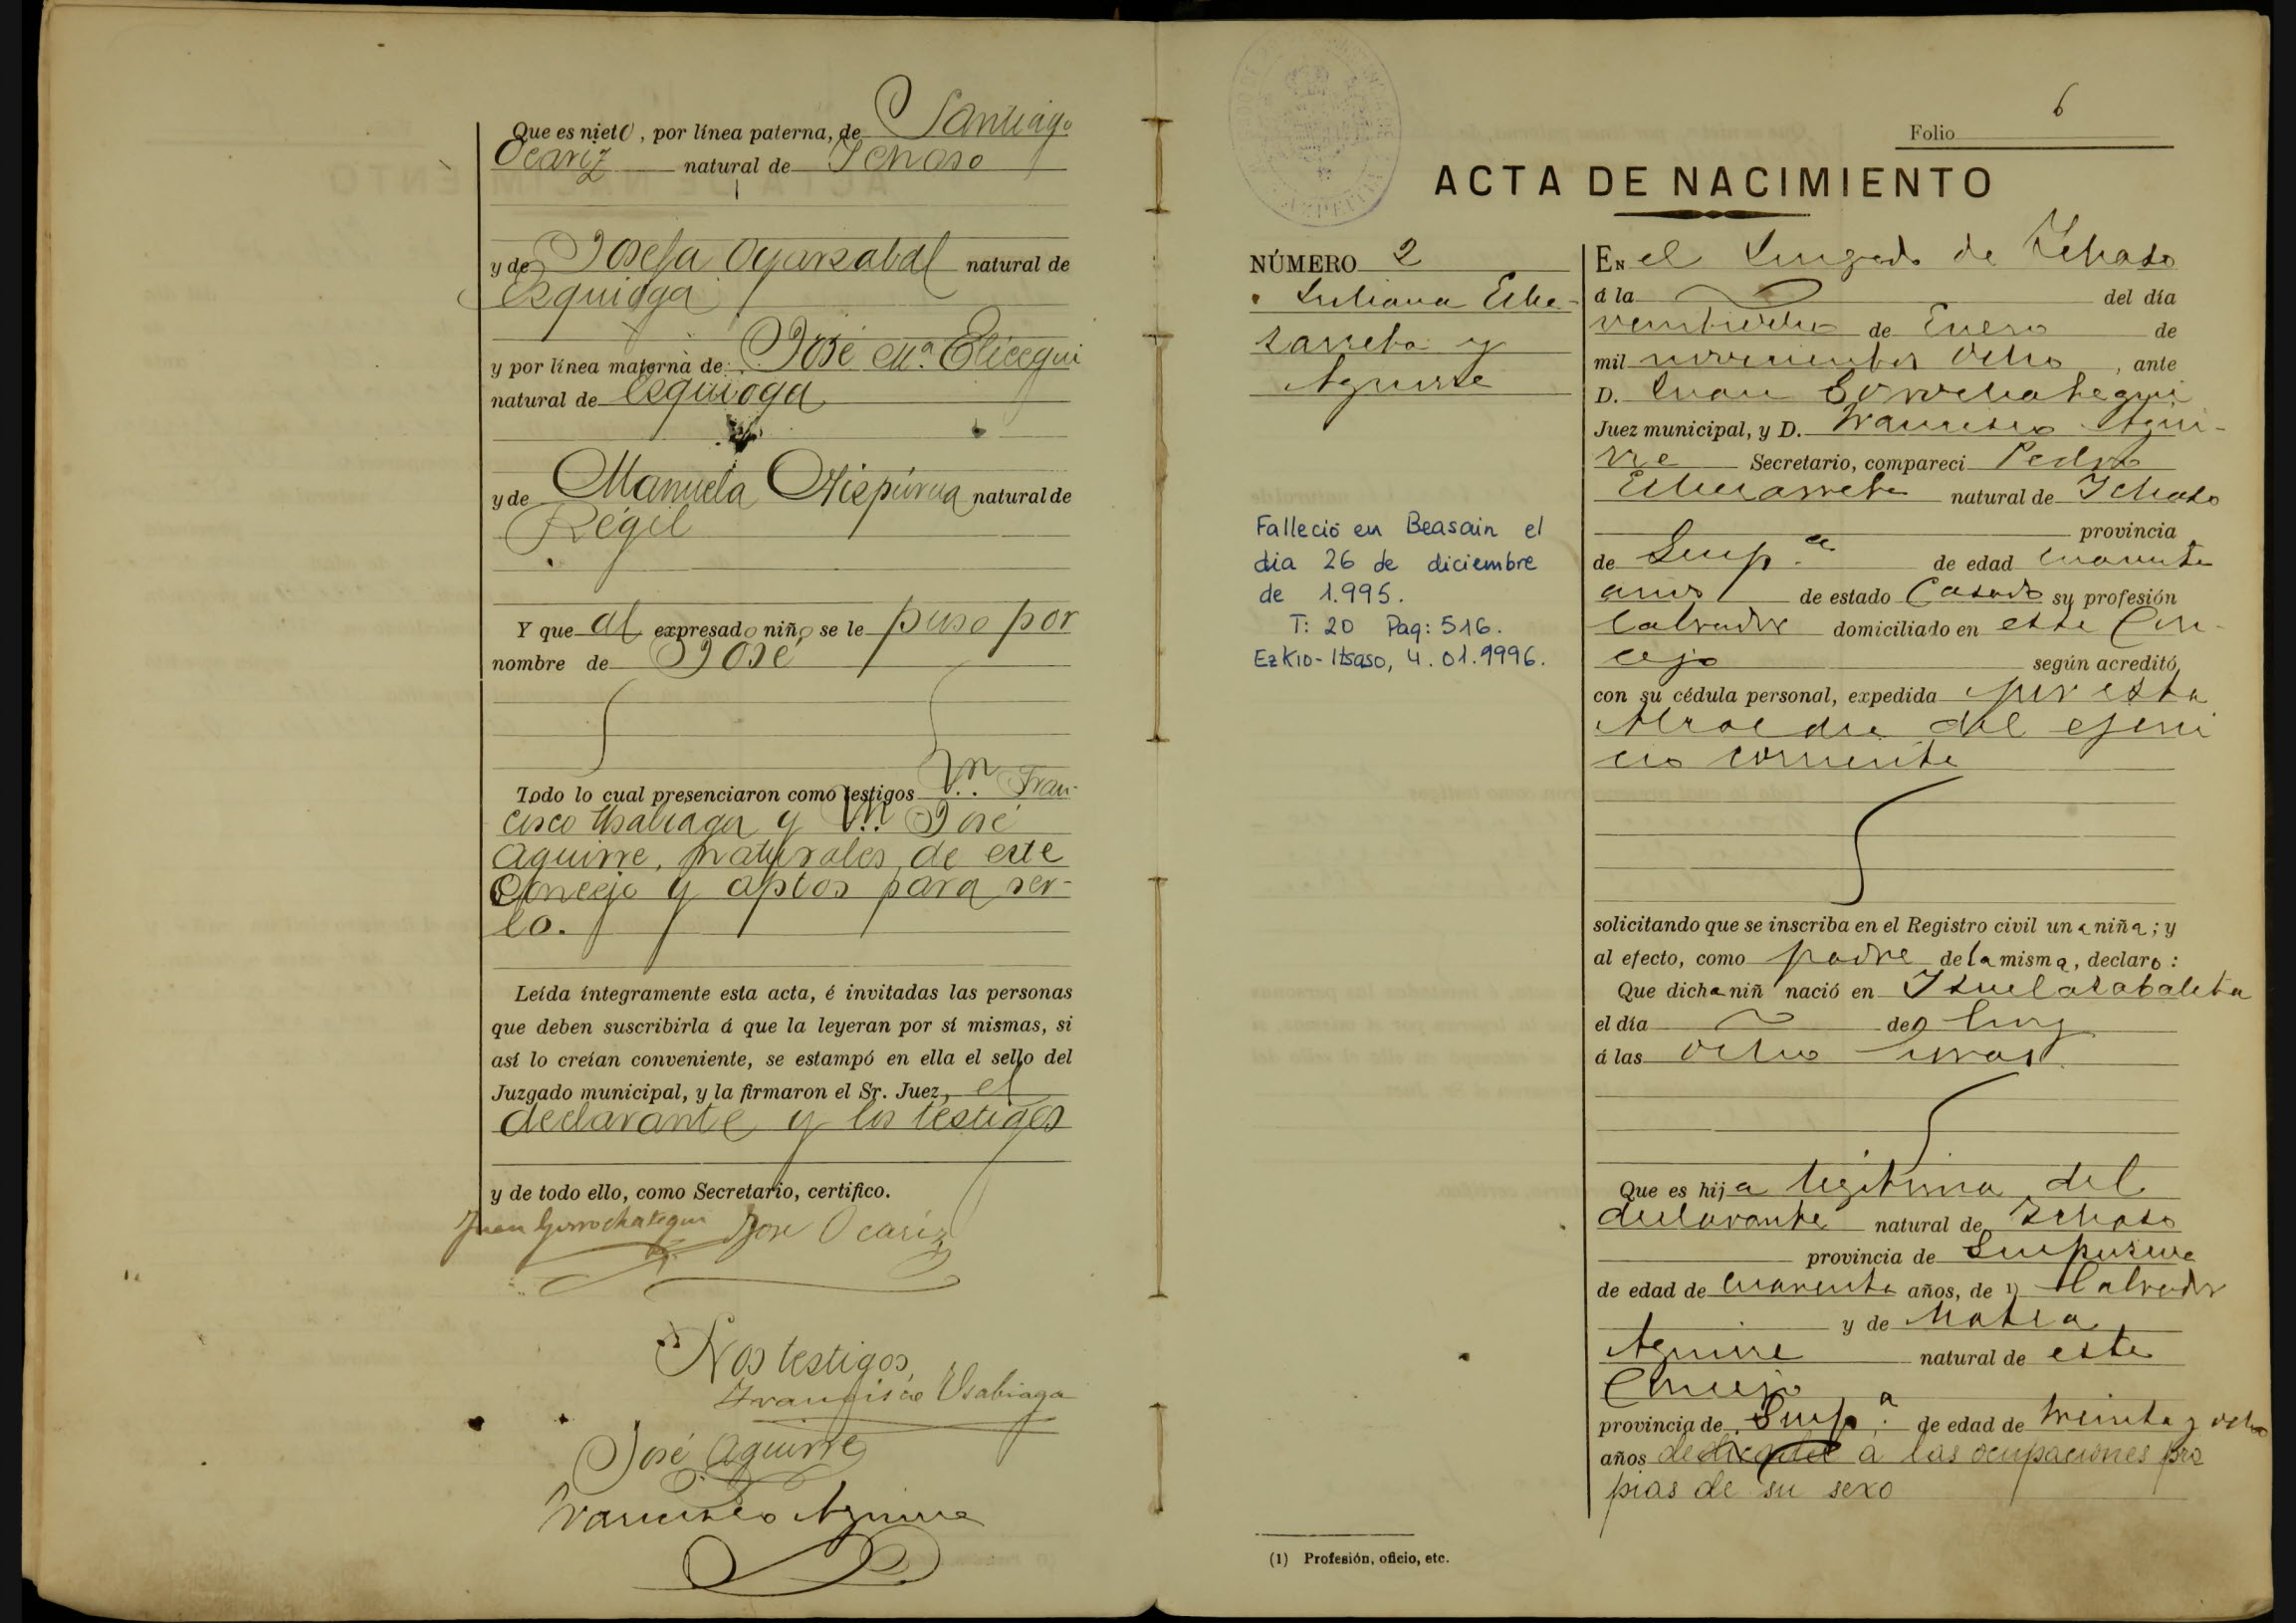 Que es nieto, por línea paterna, de Santiago
Ocariz natural de Ichaso
y de Josefa Oyarzabal natural de
Ezquioga
y por línea materna de: José Mª Elicegui
natural de Ezquioga
y de Manuela natural de
Régil
Y que al expresado niño se le puso por
nombre de José
Todo lo cual presenciaron como testigos Fran-
cisco Usabiaga y José
Aguirre, naturales de este
Concejo y aptos para ser-
lo.
Leída íntegramente esta acta, é invitadas las personas
que deben suscribirla á que la leyeran por sí mismas, si
así lo creían conveniente, se estampó en ella el sello del
Juzgado municipal, y la firmaron el Sr. Juez, el
declarante y los testigos
y de todo ello, como Secretario, certifico.
Juan Gorrochategui José Ocariz
Los testigos,
Francisco Usabiaga
José Aguirre
Francisco Aguirre
Folio 6
ACTA DE NACIMIENTO
NÚMERO 2
Juliana Eche-
zarreta y
Aguirre
Falleció en Beasain el
dia 26 de diciembre
de 1.995.
T: 20 Pag: 516.
Ezkio-Itsaso, 4.01.1996.
EN el Juzgado de Ichaso
á la del día
veintiocho de Enero de
mil novecientos ocho, ante
D. Juan Gorrochategui
Juez municipal, y D. Francisco Agui-
rre Secretario, compareci Pedro
Echezarreta natural de Ichaso
provincia
de Guipª de edad cuarenta
años de estado Casado su profesión
labrador domiciliado en este Con-
cejo según acreditó
con su cédula personal, expedida por esta
Alcaldia del ejerci
cio corriente
solicitando que se inscriba en el Registro civil una niña; y
al efecto, como padre de la misma, declaro:
Que dicha niñ nació en
el día de hoy
á las ocho horas
Que es hija legitima del
declarante natural de Ichaso
provincia de Guipuzcoa
de edad de cuarenta años, de 1) labrador
y de Maria
Aguirre natural de este
Concejo
provincia de Guipª de edad de treinta y ocho
años dedicada á las ocupaciones pro
pias de su sexo
(1) Profesión, oficio, etc.